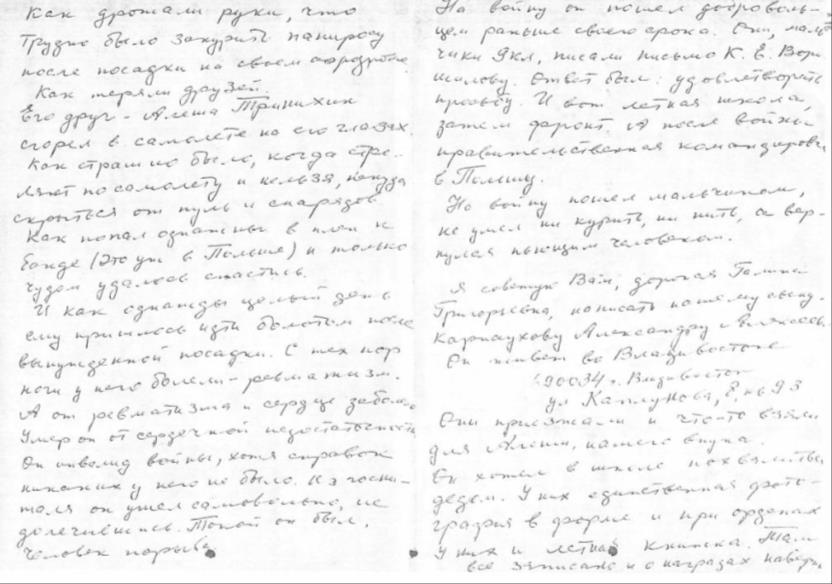 Как дрожали руки, что
трудно было закурить папиросу
после посадки на своем аэродроме.
Как теряли друзей.
Его друг - Алеша
сгорел в самолете на его глазах.
Как страшно было, когда стре-
ляют по самолету и нельзя, некуда
скрыться от пуль и снарядов.
Как попал однажды в плен к
банде (Это уж в Польше) и только
чудом удалось спастись.
И как однажды целый день
ему пришлось идти болотом после
вынужденной посадки. С тех пор
ноги у него болели - ревматизм.
А от ревматизма и сердце заболело
Умер он от сердечной недостаточности
Он инвалид войны, хотя справок
никаких у него не было. Из госпи-
таля он ушел самовольно, не
долечившись. Такой он был,
человек порыва
На войну он пошел доброволь-
цем раньше своего срока. Они, маль-
чики писали письмо К. Е. Вор-
шилову. Ответ был: удовлетворить
просьбу. И вот летная школа,
затем фронт. А после войны
правительственная командировка
в Польшу.
На войну пошел мальчиком,
не умел ни курить, ни пить, а вер-
нулся пьющим человеком.
Я советую Вам, дорогая Галина
Григорьевна, написать нашему сыну.
Карнаухову Александру Алексеев.
Он живет во Владивостоке
690034 г. Владивосток
ул 93
Они приезжали и что-то взяли
для Алеши, нашего внука.
Он хотел в школе похвалиться
дедом. У них единственная фото-
графия в форме и при орденах
У них и летная книжка. Там
все записано и о наградах наверн